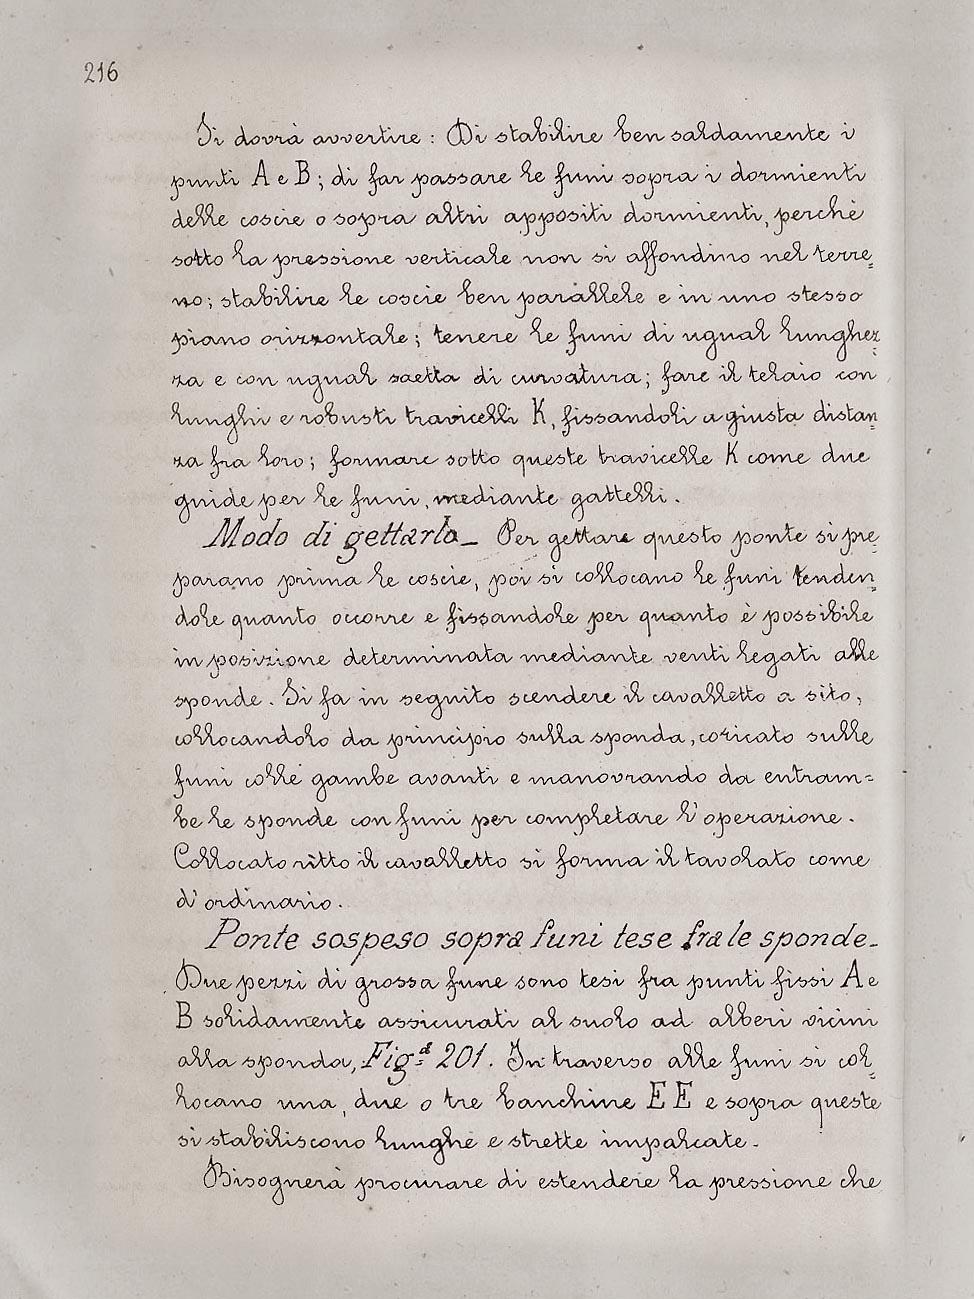 216
Si dovrà avvertire: Di stabilire ben saldamente i
punti A e B; di far passare le funi sopra i dormienti
delle coscie o sopra altri appositi dormienti, perchè
sotto la pressione verticale non si affondino nel terre=
no; stabilire le coscie ben parallele e in uno stesso
piano orizzontale; tenere le funi di ugual lunghez=
za e con ugual saetta di curvatura; fare il telaio con
lunghi e robusti travicelli K, fissandoli a giusta distan=
za fra loro; formare sotto queste travicelle K come due
guide per le funi, mediante gattelli.
Modo di gettarlo_ Per gettare questo ponte si pre=
parano prima le coscie, poi si collocano le funi tenden=
dole quanto occorre e fissandole per quanto è possibile
in posizione determinata mediante venti legati alle
sponde. Si fa in seguito scendere il cavalletto a sito,
collocandolo da principio sulla sponda, coricato sulle
funi colle gambe avanti e manovrando da entram=
be le sponde con funi per completare l'operazione.
Collocato ritto il cavalletto si forma il tavolato come
d'ordinario.
Ponte sospeso sopra funi tese fra le sponde_
Due pezzi di grossa fune sono tesi fra punti fissi A e
B solidamente assicurati al suolo ad alberi vicini
alla sponda, Fig.ª 201. In traverso alle funi si col=
locano una, due o tre banchine E E e sopra queste
si stabiliscono lunghe e strette impalcate.
Bisognerà procurare di estendere la pressione che